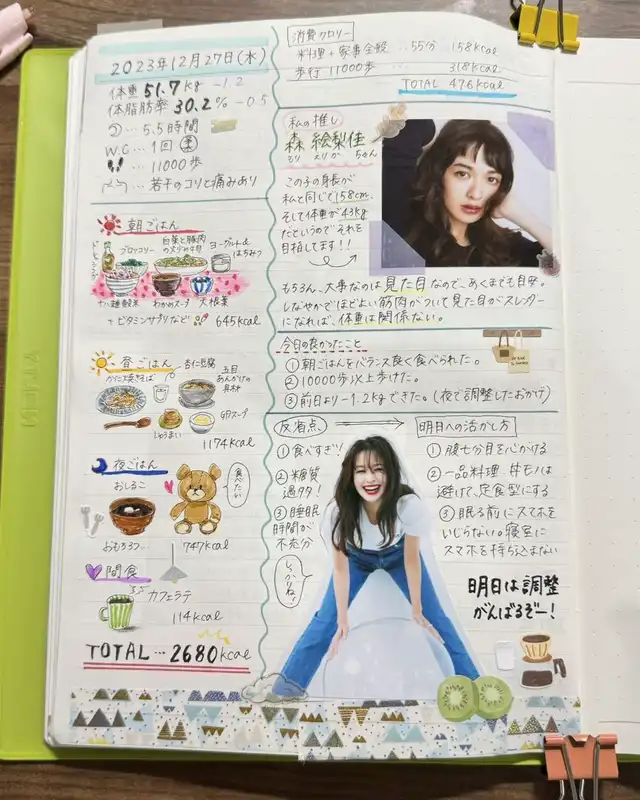 2023年12月27日(水)
体重 51.7kg −1.2
体脂肪率 30.2% −0.5
…5.5時間
W.C…1回
…11000歩
…若干のコリと痛みあり
朝ごはん
ドレッシング
ブロッコリー
白菜と豚肉の
ヨーグルト&はちみつ
わかめスープ
大根葉
+ビタミンサプリなど
645kcal
昼ごはん
杏仁豆腐
五目あんかけの具材
しゅうまい
卵スープ
1174kcal
夜ごはん
おしるこ
食べたい
おもち3つ…
747kcal
間食
カフェラテ
114kcal
TOTAL…2680kcal
消費カロリー
料理+家事全般…55分 158kcal
歩行 11000歩 318kcal
TOTAL 476kcal
私の推し
森 絵梨佳
もり えりか ちゃん
この子の身長が
私と同じで158cm。
そして体重が43kg
だというのでそれを
目指してます!!
もちろん、大事なのは見た目なので、あくまでも目安。
しなやかでほどよい筋肉がついて見た目がスレンダー
になれば、体重は関係ない。
今日の良かったこと
①朝ごはんをバランス良く食べられた。
②10000歩以上歩けた。
③前日より−1.2kgできた。(夜で調整したおかげ)
反省点
①食べすぎ
②糖質過多!
③睡眠時間が不充分
しっかりね!
明日への活かし方
①腹七分目を心がける
②一品料理 丼モノは
避けて、定食型にする
③眠る前にスマホを
いじらない。寝室に
スマホを持ち込まない
明日は調整
がんばるぞー!